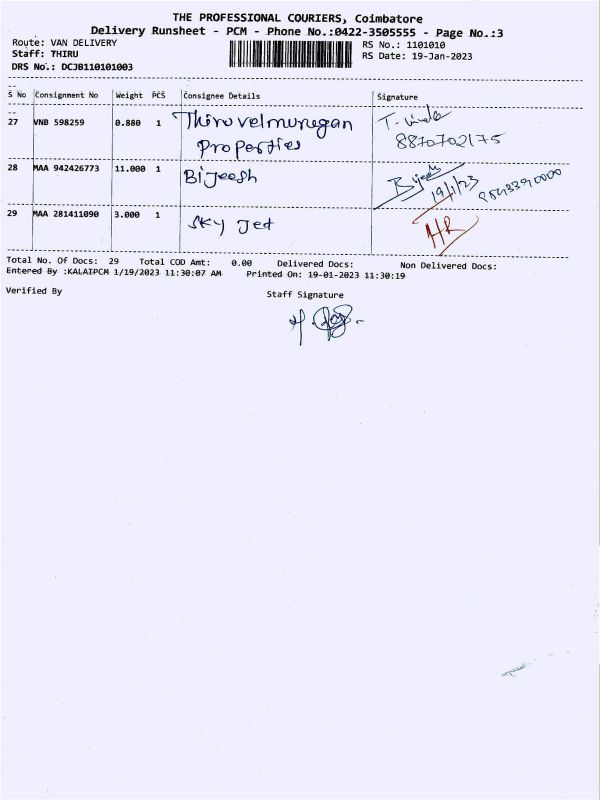 THE PROFESSIONAL COURIERS, Coimbatore
Delivery Runsheet - PCM - Phone No.:0422-3505555 - Page No.:3
Route: VAN DELIVERY RS No.: 1101010
Staff: THIRU RS Date: 19-Jan-2023
DRS No.: DCJB110101003
S No Consignment No Weight PCS Consignee Details Signature
27 VNB 598259 0.880 1 Thiruvelmurugan
Properties
8870702175
28 MAA 942426773 11.000 1 Bijeesh Bijeesh
19/1/23
29 MAA 281411090 3.000 1 Sky Jet HR
Total No. Of Docs: 29 Total COD Amt: 0.00 Delivered Docs: Non Delivered Docs:
Entered By :KALAIPCM 1/19/2023 11:30:07 AM Printed On: 19-01-2023 11:30:19
Verified By Staff Signature